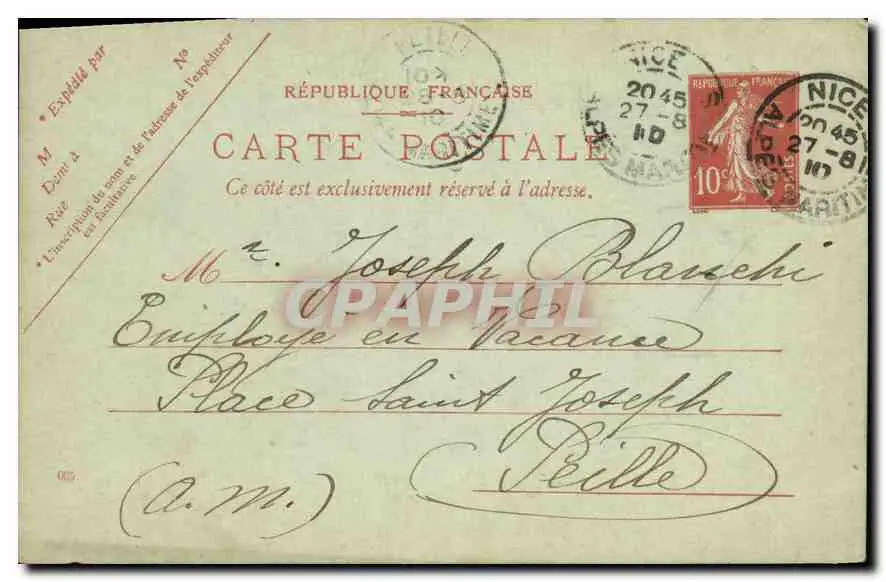 * Expédié par Nº
M
Demt à
Rue
* L'inscription du nom et de l'adresse de l'expéditeur
est facultative.
RÉPUBLIQUE FRANÇAISE
CARTE POSTALE
Ce côté est exclusivement réservé à l'adresse.
NICE
20 45
27 - 8
10
ALPES MARITIMES
REPUBLIQUE FRANÇAISE
10 c
POSTES
NICE
20 45
27 - 8
10
ALPES MARITIMES
Mr. Joseph Blanchi
CPAPHIL
Employé en Vacance
Place Saint Joseph
Peille
(A.M.)
005